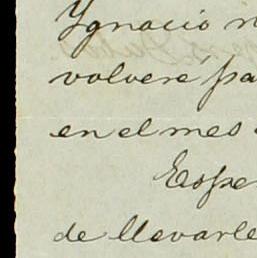 Ygnacio n
volveré, pa
en el mes
Espe
de llevarle